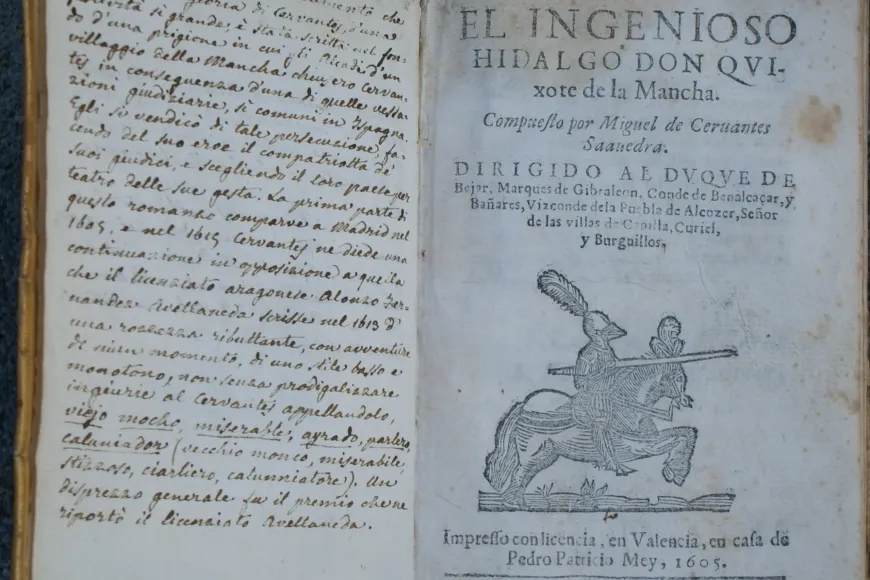 che
gloria di Cervantes, d'una
sì grande, è stata scritta nel fon-
do d'una prigione in cui gli d'un
villaggio della Mancha chiusero Cervan-
tes in conseguenza d'una di quelle vessa-
zioni giudiziarie, sì comuni in Ispagna.
Egli si vendicò di tale persecuzione, fa-
cendo del suo eroe il compatriotta de'
suoi giudici, e scegliendo il loro paese per
teatro delle sue gesta. La prima parte di
questo romanzo comparve a Madrid nel
1605, e nel 1615 Cervantes ne diede una
continuazione in opposizione a quella
che il licenziato aragonese Alonzo Fer-
nandez Avellaneda scrisse nel 1613 d'
una rozzezza ributtante, con avventure
di niun momento, di uno stile basso e
monotono, non senza prodigalizzare
ingiurie al Cervantes appellandolo,
viejo mocho, miserable, ayrado, parlero,
caluniador (vecchio monco, miserabile,
stizzoso, ciarliero, calunniatore). Un
disprezzo generale fu il premio che ne
riportò il licenziato Avellaneda.
EL INGENIOSO
HIDALGO DON QVI-
xote de la Mancha.
Compuesto por Miguel de Ceruantes
Saauedra.
DIRIGIDO AL DVQVE DE
Bejar, Marques de Gibraleon, Conde de Benalcaçar, y
Bañares, Vizconde dela Puebla de Alcozer, Señor
de las villas de Capilla, Curiel,
y Burguillos.
Impresso con licencia, en Valencia, en casa de
Pedro Patricio Mey, 1605.